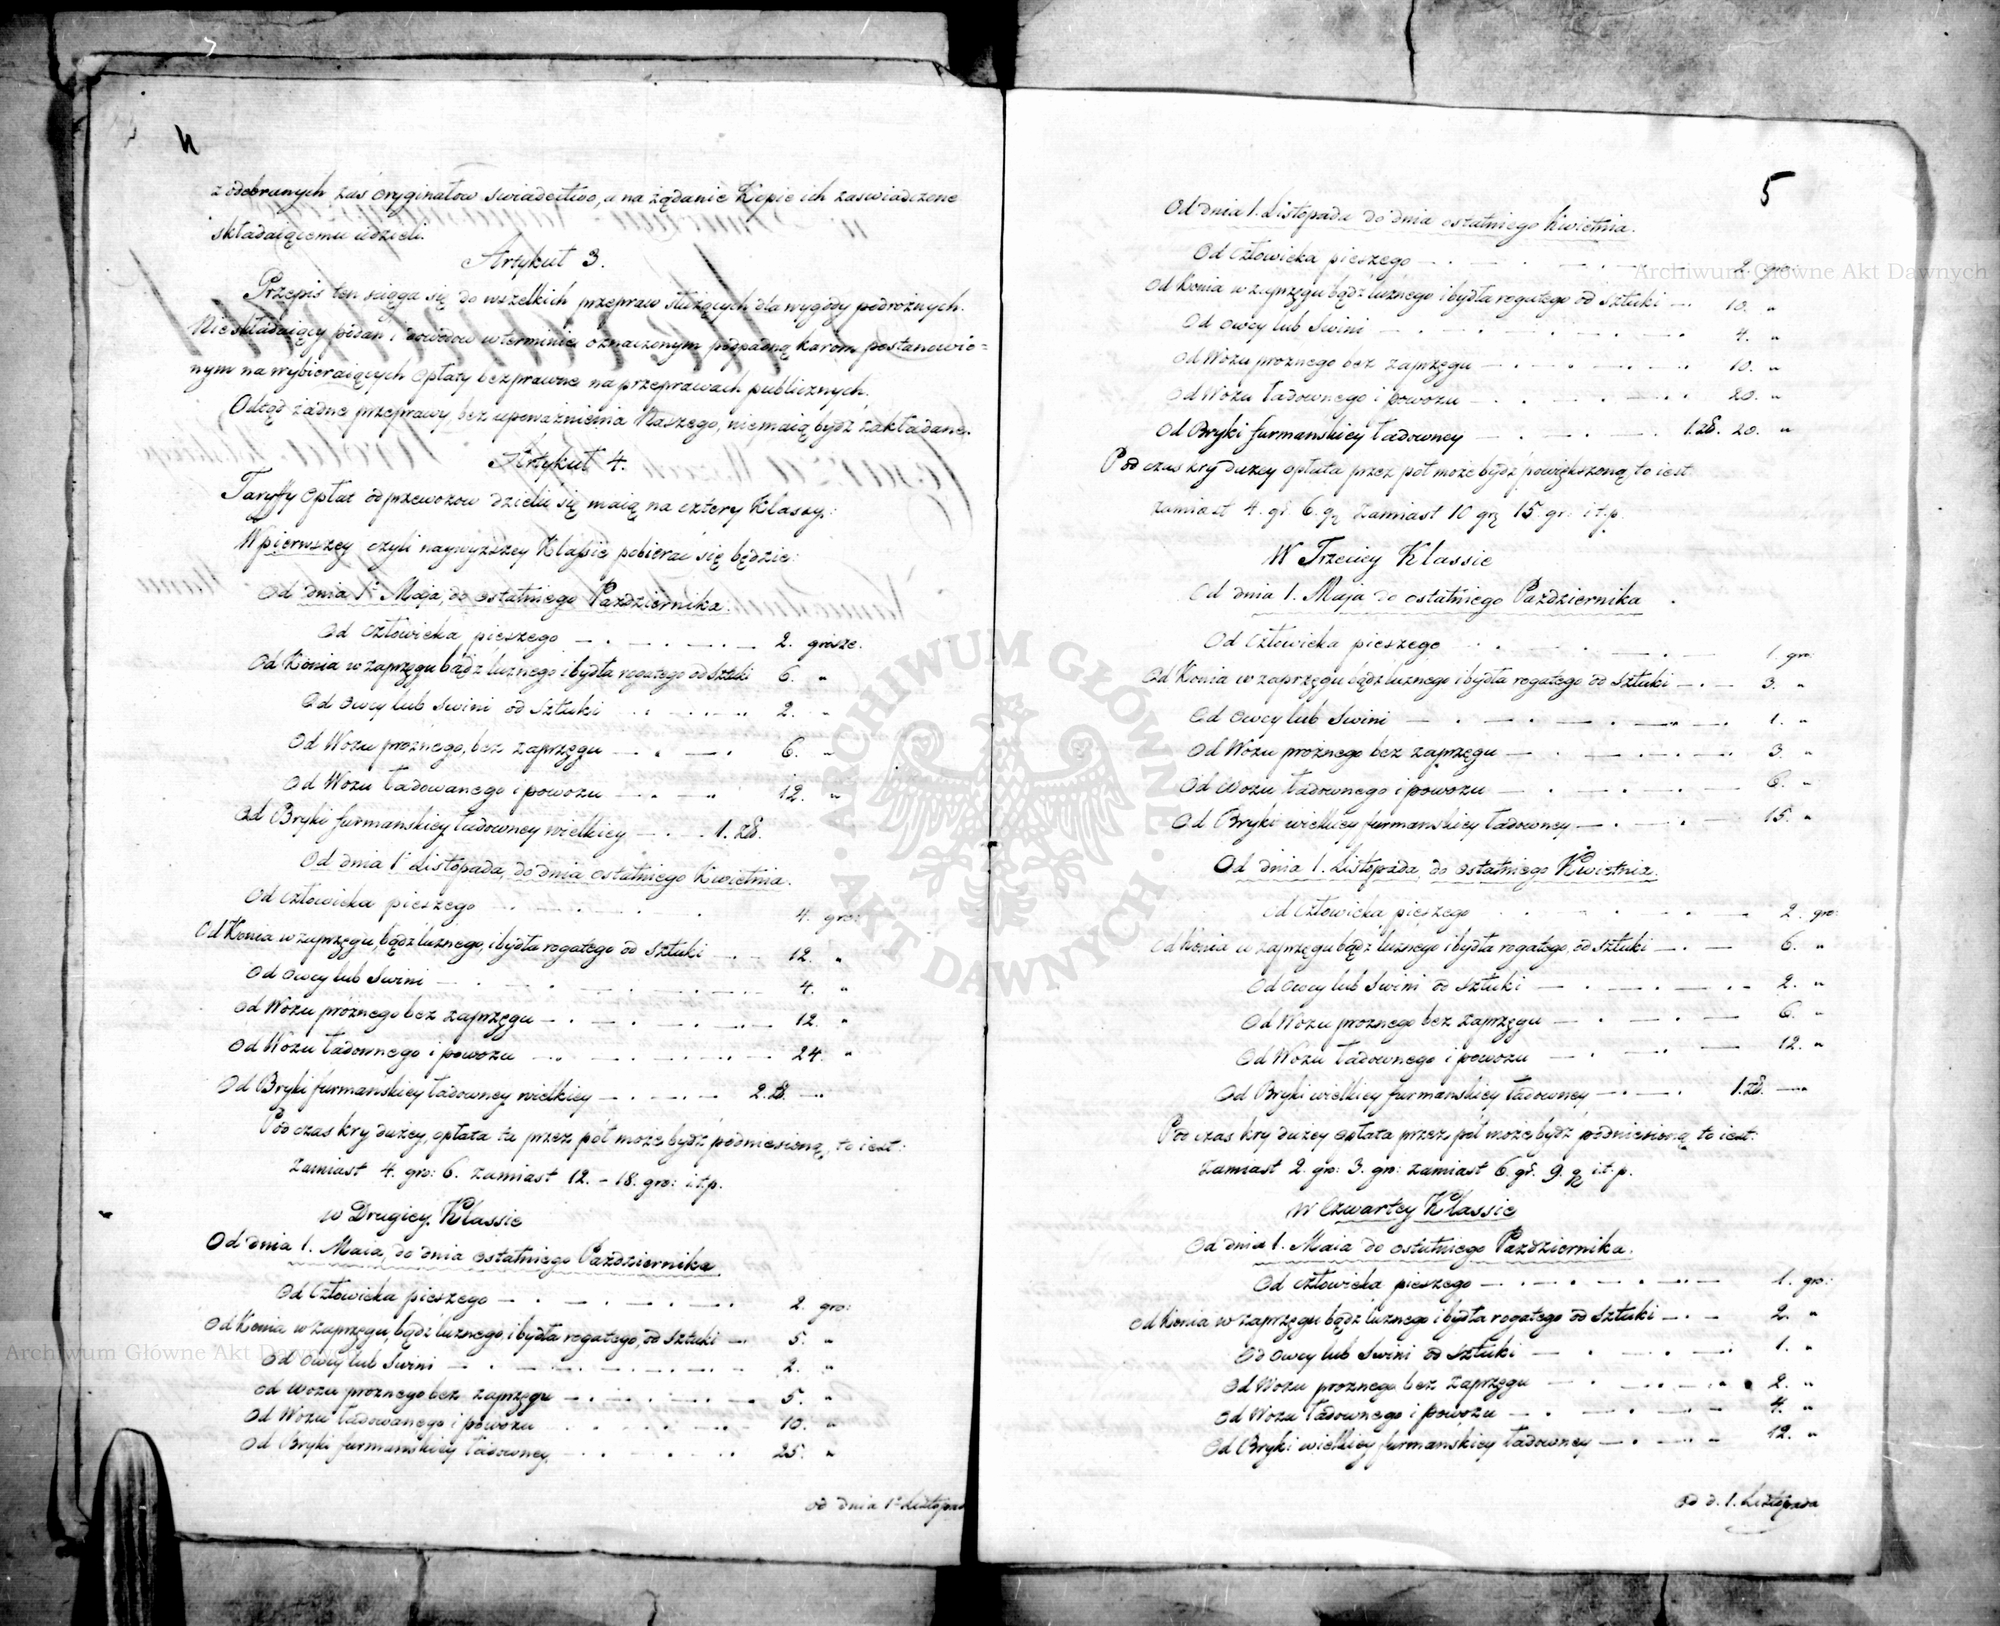 4
z odebranych zaś oryginałow swiadectwo, a na żądanie Kopie ich zaswiadczone
składaiącemu udzieli.
Artykuł 3.
Przepis ten sciąga się do wszelkich przepraw służących dla wygody podrożnych.
Nieskładaiący podań i dowodow w terminie oznaczonym podpadną karom postanowio=
nym na wybieraiących opłaty bezprawne na przeprawach publicznych.
Odtąd żadne przeprawy, bez upoważnienia Naszego, niemaią bydź zakładane.
Artykuł 4.
Taryffy opłat od przewozow dzielić się maią na cztery Klassy:
W pierwszey czyli naywyższey Klassie pobierać się będzie:
Od dnia 1º Maja, do ostatniego Pazdziernika.
Od człowieka pieszego — . — . — . — 2. grosze.
Od Konia w zaprzęgu bądź luznego i bydła rogatego od sztuki 6. "
Od owcy lub swini od sztuki . . — . . — . " 2. "
Od Wozu proznego, bez zaprzęgu — . — . 6. "
Od Wozu ładowanego i powozu — . — " 12. "
Od Bryki furmanskiey ładowney wielkiey — . — . — 1. zł.
Od dnia 1º Listopada, do dnia ostatniego Kwietnia.
Od człowieka pieszego — . — . — . 4. gro:
Od Konia w zaprzęgu, bądz luznego, i bydła rogatego od sztuki — . — 12. "
Od owcy lub Swini — . — . — . — . — 4. "
Od Wozu próznego bez zaprzęgu — . — . — . — . — 12. "
Od Wozu ładownego i powozu — . — . — . — . — 24. "
Od Bryki furmanskiey ładowney wielkiey — . — . — 2. zł. —
Podczas kry dużey, opłata ta przez pół może bydź podniesioną, to iest:
zamiast 4. gro: 6. zamiast 12. – 18. gro: i.t.p.
w Drugiey Klassie
Od dnia 1. Maia, do dnia ostatniego Pazdziernika
Od Człowieka pieszego — . — . — . — 2. gro:
Od Konia w zaprzęgu, bądz luznego, i bydła rogatego, od sztuki — 5. "
Od owcy lub Swini — . — . — . — . — 2. "
Od wozu proznego bez zaprzęgu — . — . — . — 5. "
Od Wozu ładowanego i powozu . — . — . — 10. "
Od Bryki furmanskiey ładowney. — . — . — 25. "
od dnia 1º Listopad
5
Od dnia 1. Listopada do dnia ostatniego Kwietnia.
Od Człowieka pieszego — . — . — 2 gro
Od Konia w zaprzęgu bądź luznego i bydła rogatego od sztuki — . 10. "
Od owcy lub Swini — . — . — . — 4. "
Od Wozu proznego bez zaprzęgu — . — . — . 10. "
Od Wozu ładownego i powozu — . — . — . 20. "
Od Bryki furmanskiey ładowney — . — . — 1. zł. 20. "
Podczas kry dużey opłata przez pół może bydz powiększoną, to iest
zamiast 4. gr. 6. gr zamiast 10 gr 15. gr: i.t.p.
W Trzeciey Klassie
Od dnia 1. Maja do ostatniego Pazdziernika .
Od Człowieka pieszego . — . — . — 1. gro:
Od Konia w zaprzęgu bądz luznego i bydła rogatego od sztuki — . — 3. "
Od owcy lub Swini — . — . — . — 1. "
Od Wozu proznego bez zaprzęgu — . — . — . 3. "
Od Wozu ładownego i powozu — . — . — . — 6. "
Od Bryki wielkiey furmanskiey ładowney — . — . — 15. "
Od dnia 1. Listopada, do ostatniego Kwietnia.
Od Człowieka pieszego . — . — . — 2. gro:
Od Konia w zaprzęgu bądz luznego i bydła rogatego, od sztuki — . — 6. "
Od owcy lub Swini od sztuki — . — . — . 2. "
Od Wozu proznego bez zaprzęgu — . — . — . — 6. "
Od Wozu ładownego i powozu — . — . — 12. "
Od Bryki wielkiey furmanskiey ładowney — . — . 1. zł. —
Podczas kry dużey opłata przez pół może bydź podniesioną to iest:
zamiast 2. gro: 3. gro: zamiast 6. gr. 9. gr i.t.p.
w Czwartey Klassie
Od dnia 1. Maia do ostatniego Pazdziernika.
Od Człowieka pieszego — . — . — . — 1. gro:
Od Konia w zaprzęgu bądź luznego i bydła rogatego od sztuki — . — 2. "
Od owcy lub Swini od sztuki — . — . — 1. "
Od Wozu proznego bez zaprzęgu — . — . — 2. "
Od Wozu ładownego i powozu — . — . — 4. "
Od Bryki wielkiey furmanskiey ładowney — . — . — 12. "
od d. 1. Listopada
ARCHIWUM GŁÓWNE · AKT DAWNYCH ·
Archiwum Główne Akt Dawnych
Archiwum Główne Akt Dawnych